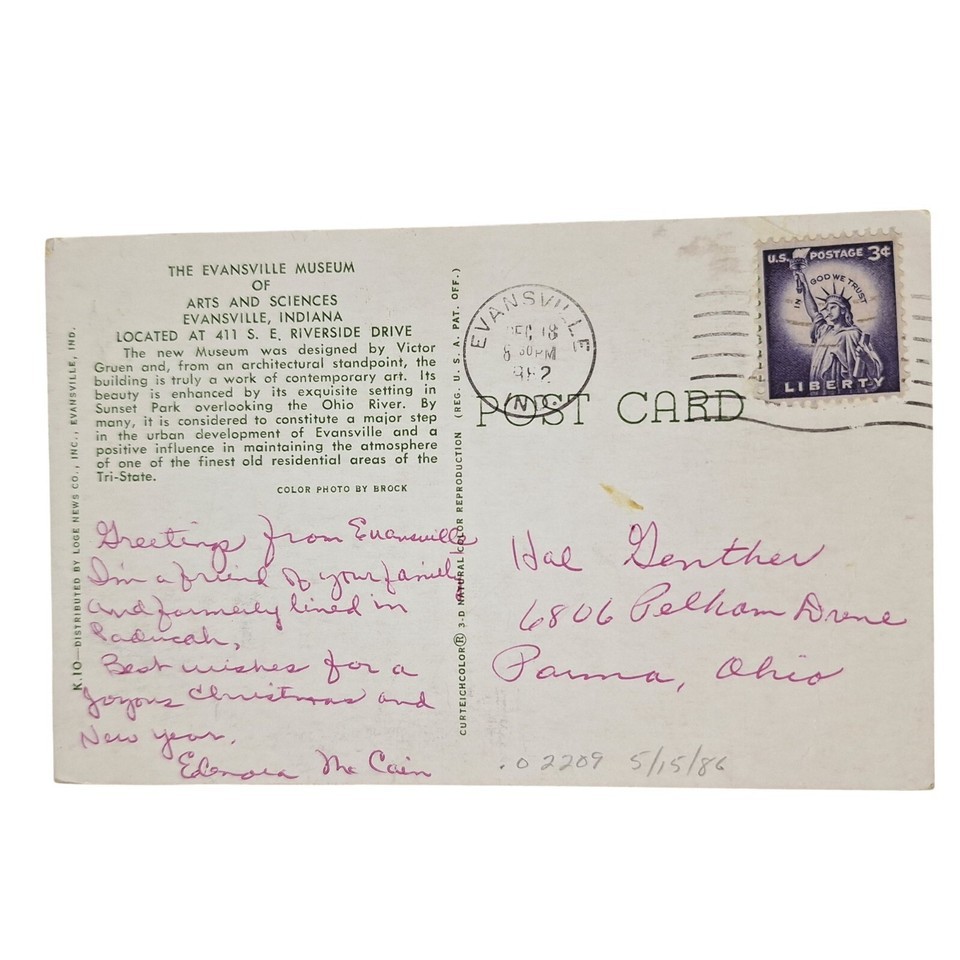 THE EVANSVILLE MUSEUM
OF
ARTS AND SCIENCES
EVANSVILLE, INDIANA
LOCATED AT 411 S. E. RIVERSIDE DRIVE
The new Museum was designed by Victor
Gruen and, from an architectural standpoint, the
building is truly a work of contemporary art. Its
beauty is enhanced by its exquisite setting in
Sunset Park overlooking the Ohio River. By
many, it is considered to constitute a major step
in the urban development of Evansville and a
positive influence in maintaining the atmosphere
of one of the finest old residential areas of the
Tri-State.
COLOR PHOTO BY BROCK
K.10—DISTRIBUTED BY LOGE NEWS CO., INC., EVANSVILLE, IND.
Greetings from Evansville
I'm a friend of your family
and formerly lived in
Paducah,
Best wishes for a
Joyous Christmas and
New Year.
Elenora Mc Cain
CURTEICHCOLOR® 3-D NATURAL COLOR REPRODUCTION (REG. U. S. A. PAT. OFF.)
EVANSVILLE
DEC 18
8 30 PM
IND.
POST CARD
U.S. POSTAGE 3¢
IN GOD WE TRUST
LIBERTY
Hal Genther
6806 Pelham Drive
Parma, Ohio
.0 2209 5/15/86